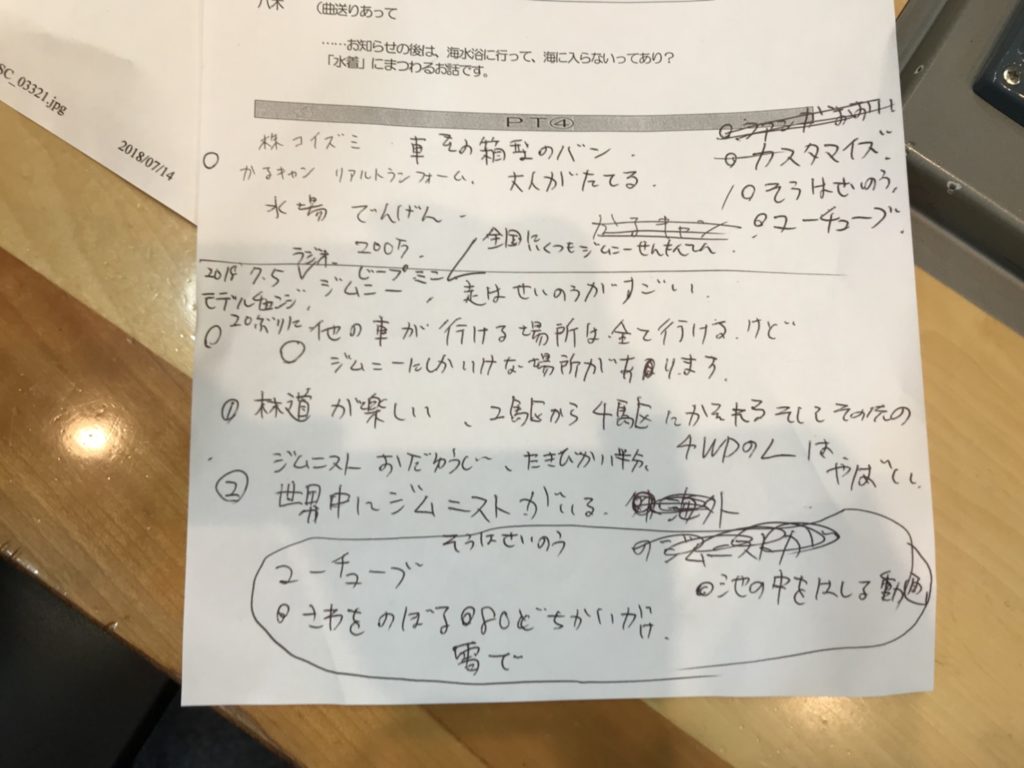 八木　（曲送りあって
……お知らせの後は、海水浴に行って、海に入らないってあり？
「水着」にまつわるお話です。
SC_03321.jpg
2018/07/14
PT④
カスタマイズ.
株コイズミ　車 その箱型のバン.
かるキャン リアルトランフォーム. 大人がたてる.
10そうはせいのう.
水場 でんげん.
かるキャン
ユーチューブ.
ラジオ. 2005. 全国にくつもジムニーせんもんてん.
2018 7.5 ジープミニ
モデルチェンジ. ジムニー, 走はせいのうがすごい.
20ぶりに
他の車が行ける場所は全て行ける.けど
ジムニーにしかいけない場所があります.
① 林道が楽しい、2駆から4駆にかえれるそしてその
4WDのLは
ジムニスト おだゆうじ、たきびかい
② 世界中にジムニストがいる. 海外
そうはせいのう
のジムニストが
ユーチューブ
池の中をはしる動画
さわをのぼる 80どちかいがけ.
雪で